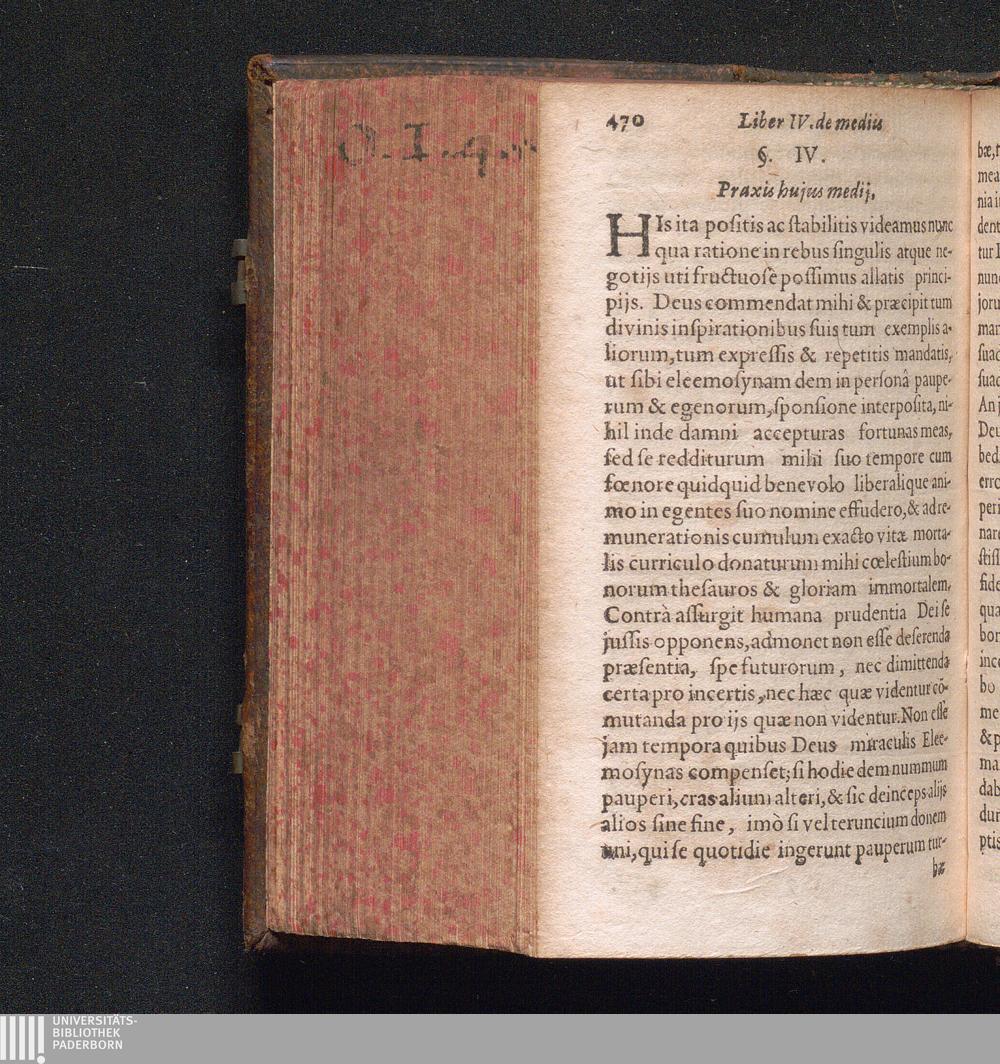 470 Liber IV. de mediis
§. IV.
Praxis hujus medij.
HIs ita positis ac stabilitis videamus nunc
qua ratione in rebus singulis atque ne-
gotijs uti fructuosè possimus allatis princi-
pijs. Deus commendat mihi & præcipit tum
divinis inspirationibus suis tum exemplis a-
liorum, tum expressis & repetitis mandatis,
ut sibi eleemosynam dem in personâ paupe-
rum & egenorum, sponsione interposita, ni-
hil inde damni accepturas fortunas meas,
sed se redditurum mihi suo tempore cum
fœnore quidquid benevolo liberalique ani-
mo in egentes suo nomine effudero, & ad re-
munerationis cumulum exacto vitæ morta-
lis curriculo donaturum mihi cœlestium bo-
norum thesauros & gloriam immortalem.
Contrà assurgit humana prudentia Dei se
jussis opponens, admonet non esse deserenda
præsentia, spe futurorum, nec dimittenda
certa pro incertis, nec hæc quæ videntur cō-
mutanda pro ijs quæ non videntur. Non esse
jam tempora quibus Deus miraculis Elee-
mosynas compenset; si hodie dem nummum
pauperi, cras alium alteri, & sic deinceps alijs
alios sine fine, imò si vel teruncium donem
uni, qui se quotidie ingerunt pauperum tur-
bæ
bæ, 
mea
nia i
dent
tur
nun
joru
man
suad
suad
An
Deu
bed
erro
peri
nar
stiss
fide
qua
bor
ince
bo
me
& p
ma
dab
dur
ptis
UNIVERSITÄTS-
BIBLIOTHEK
PADERBORN